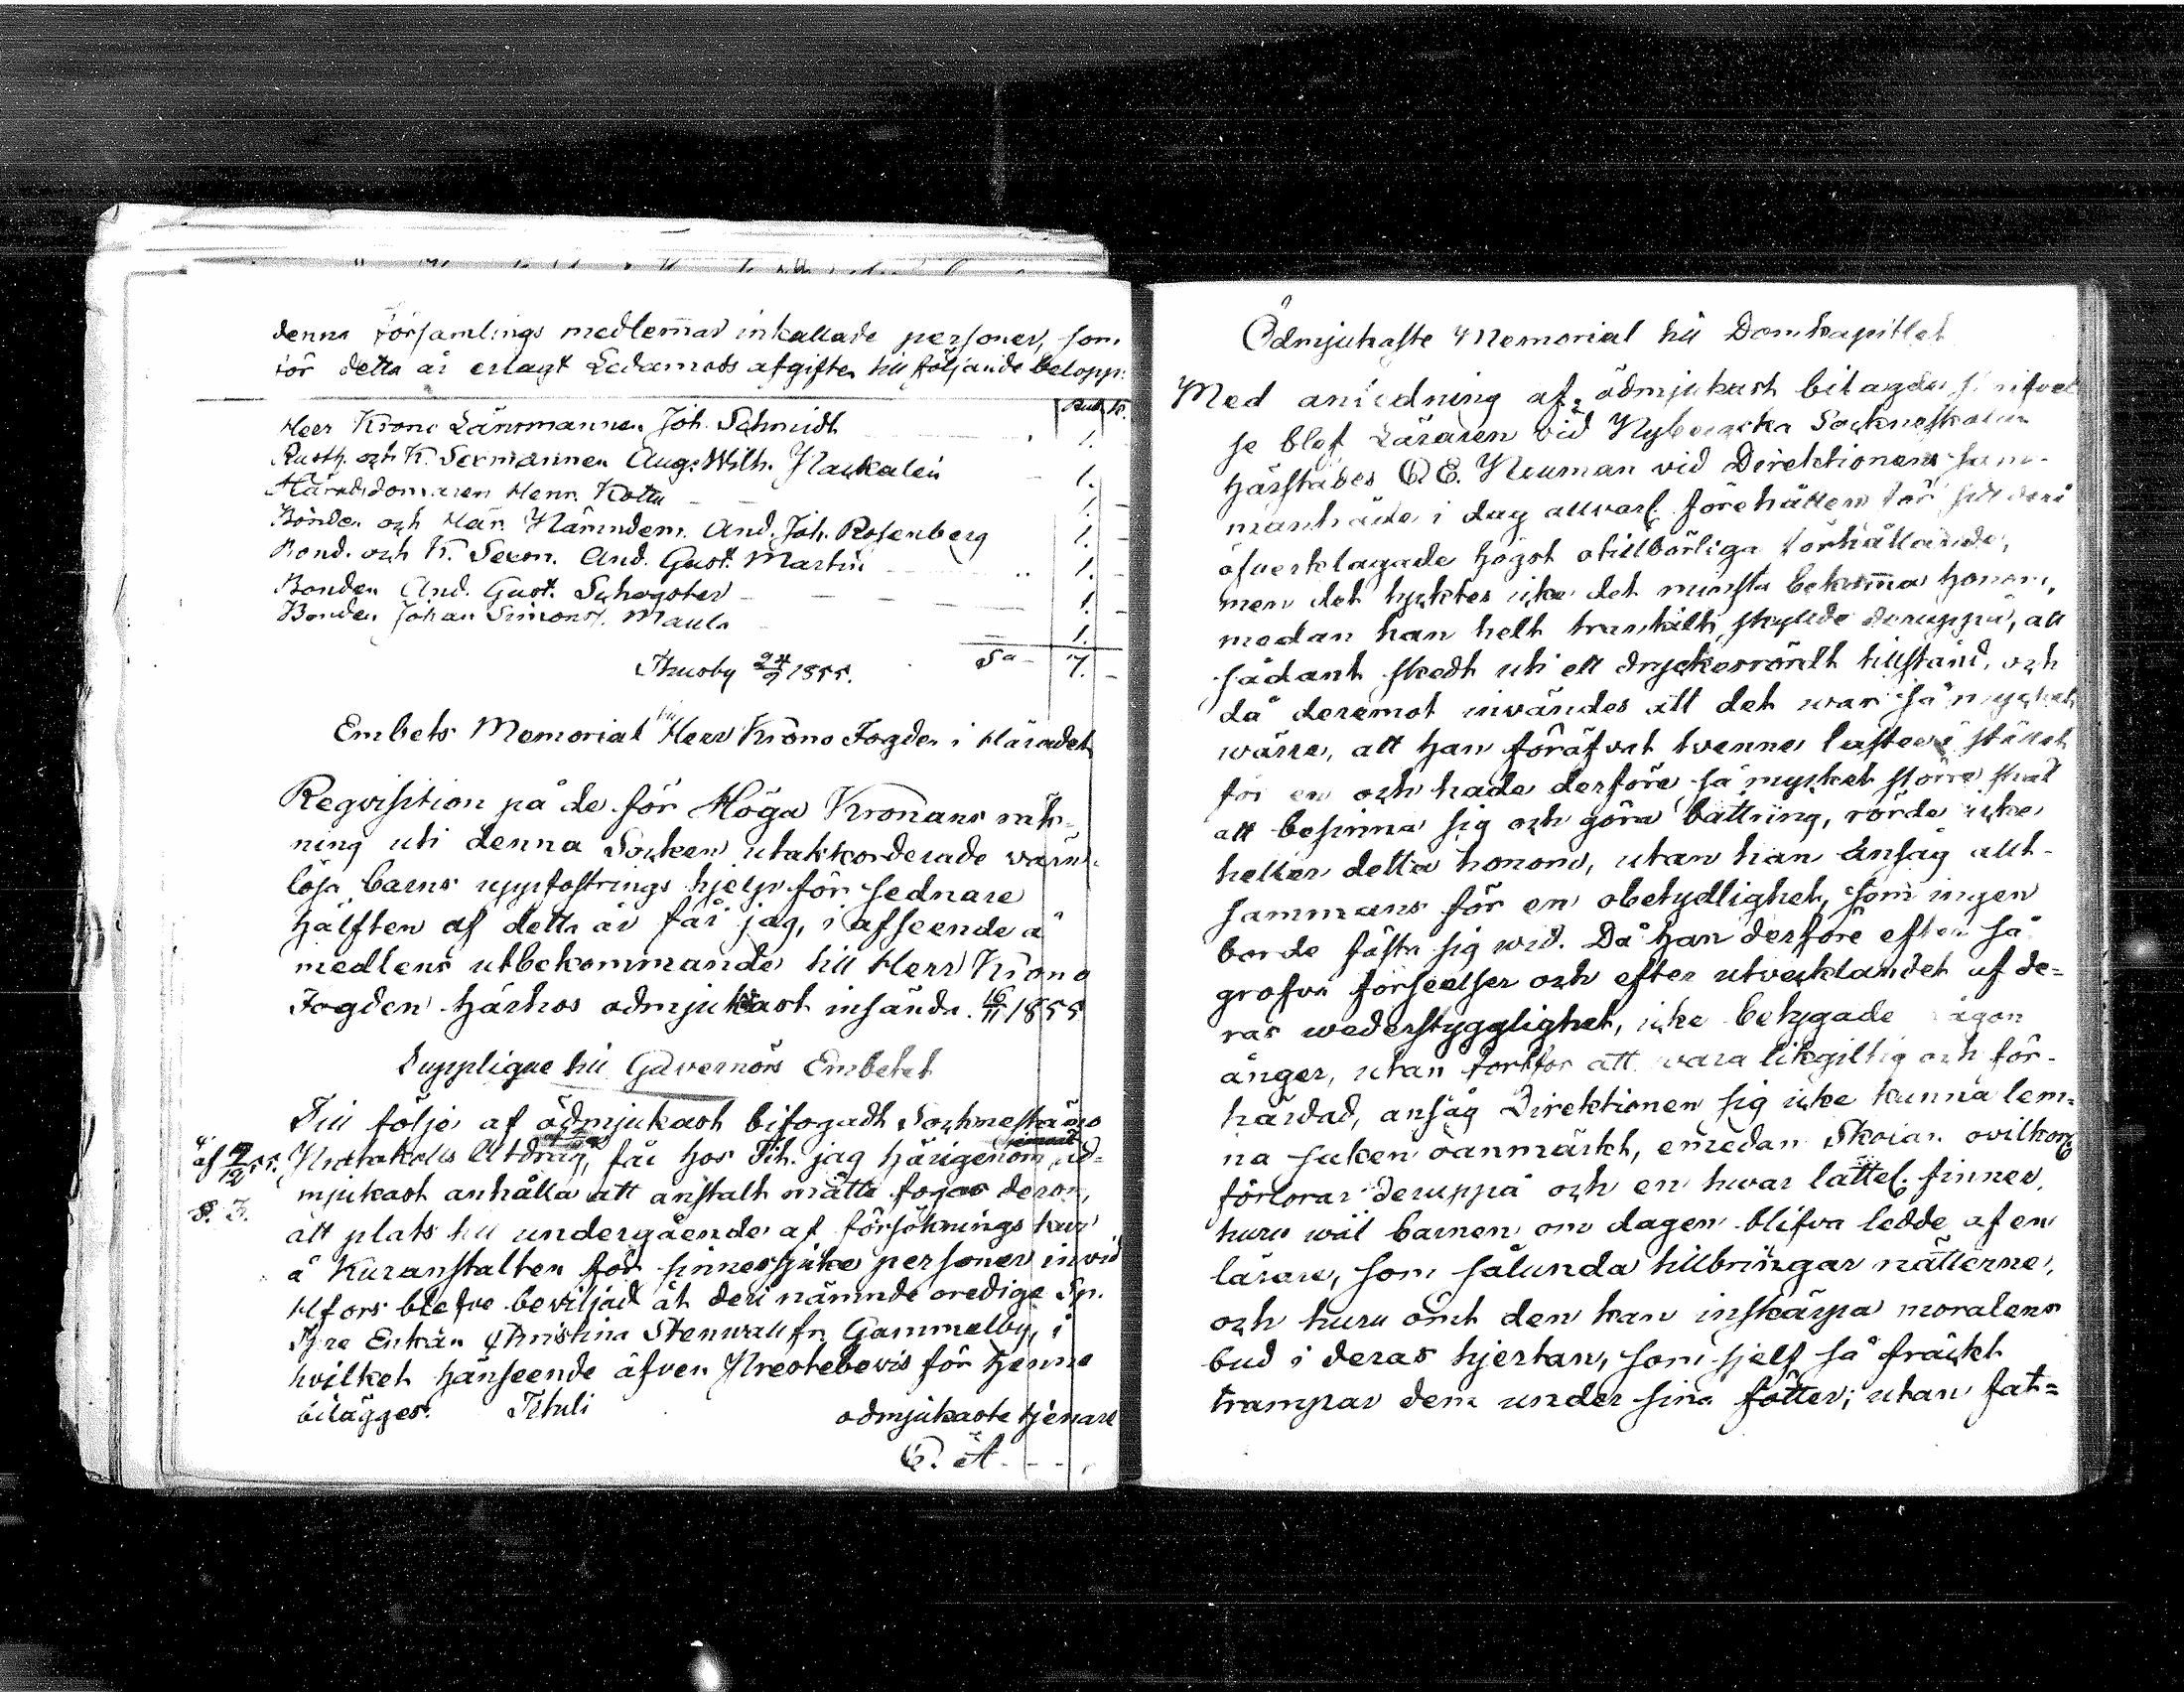 denna Församlings medlemmar inkallade personer, som
för detta år erlagt Ledamots afgiften till följande belopp:
Rub. K.
Herr Krono Länsmannen Joh. Schmidt 1.
Rusth. och K. Sexmannen Aug. Wilh. Nackalin 1.
Häradsdomaren Henr. Kottu 1. -
Bonden och Här. Nämndem. And. Joh. Rosenberg 1. -
Bond. och K. Sexm. And. Gust. Martin 1. -
Bonden And. Gust. Schogster 1. -
Bonden Johan Simonss. Maula 1.
Thusby 24/9 1855. Sa 7. -
Embets Memorial till Herr Krono Fogden i Häradet
Reqvisition på de för Höga Kronans räk-
ning uti denna Socken utackorderade värn-
lösa barns uppfostrings hjelp för sednare
hälften af detta år får jag, i afseende å
medlens utbekommande till Herr Krono
Fogden härhos ödmjukast insända. 16/11 1855
Supplique till Gouvernörs Embetet
Till följe af ödmjukast bifogadt Socknestämo
af 9/12 55. Protokolls Utdrag, får hos Tit. jag härigenom öd-
§. 3. mjukast anhålla att anstalt måtte fogas derom,
att plats till undergående af försöknings kur
å Kuranstalten för sinnessjuke personer invid
Hfors blefve beviljad åt deri nämnde oredige
Enkan Christina Stenwall fn Gammelby, i
hvilket hänseende äfven Prestebevis för henne
bilägges. Tituli ödmjukaste tjenare
C. A - - .
Ödmjukaste Memorial till Domkapitlet
Med anledning af ödmjukast bilagde skrifvel
se blef Läraren vid Nyberacka Sockneskolan
härstädes C. E. Neuman vid Direktionens sam-
manträde i dag allvarl. förehållen för sitt deri
öfverklagade högst otillbörliga förhållande,
men det tycktes icke det minsta bekomma honom,
medan han helt trankilt skyllde deruppå, att
sådant skedt uti ett dryckesrördt tillstånd, och
då deremot invändes att det war så mycket
wärre, att han föröfvat tvenne laster i stället
för en och hade derföre så mycket större skäl
att besinna sig och göra bättring, rörde icke
heller detta honom, utan han ansåg allt-
sammans för en obetydlighet, som ingen
borde fästa sig wid. Då han derföre efter så
grofva förseelser och efter utvecklandet af de-
ras wederstygglighet, icke betygade någon
ånger, utan fortfor att vara likgiltig och för-
härdad, ansåg Direktionen sig icke kunna lem-
na saken oanmärkt, emedan Skolan ovilkorl.
förlorar deruppå och en hwar lättel. finner,
huru wäl barnen om dagen blifva ledde af en
lärare, som sålunda tillbringar nätterne,
och huru ömt den kan inskärpa moralens
bud i deras hjertan, som sjelf så fräckt
trampar dem under sina fötter; utan fat-